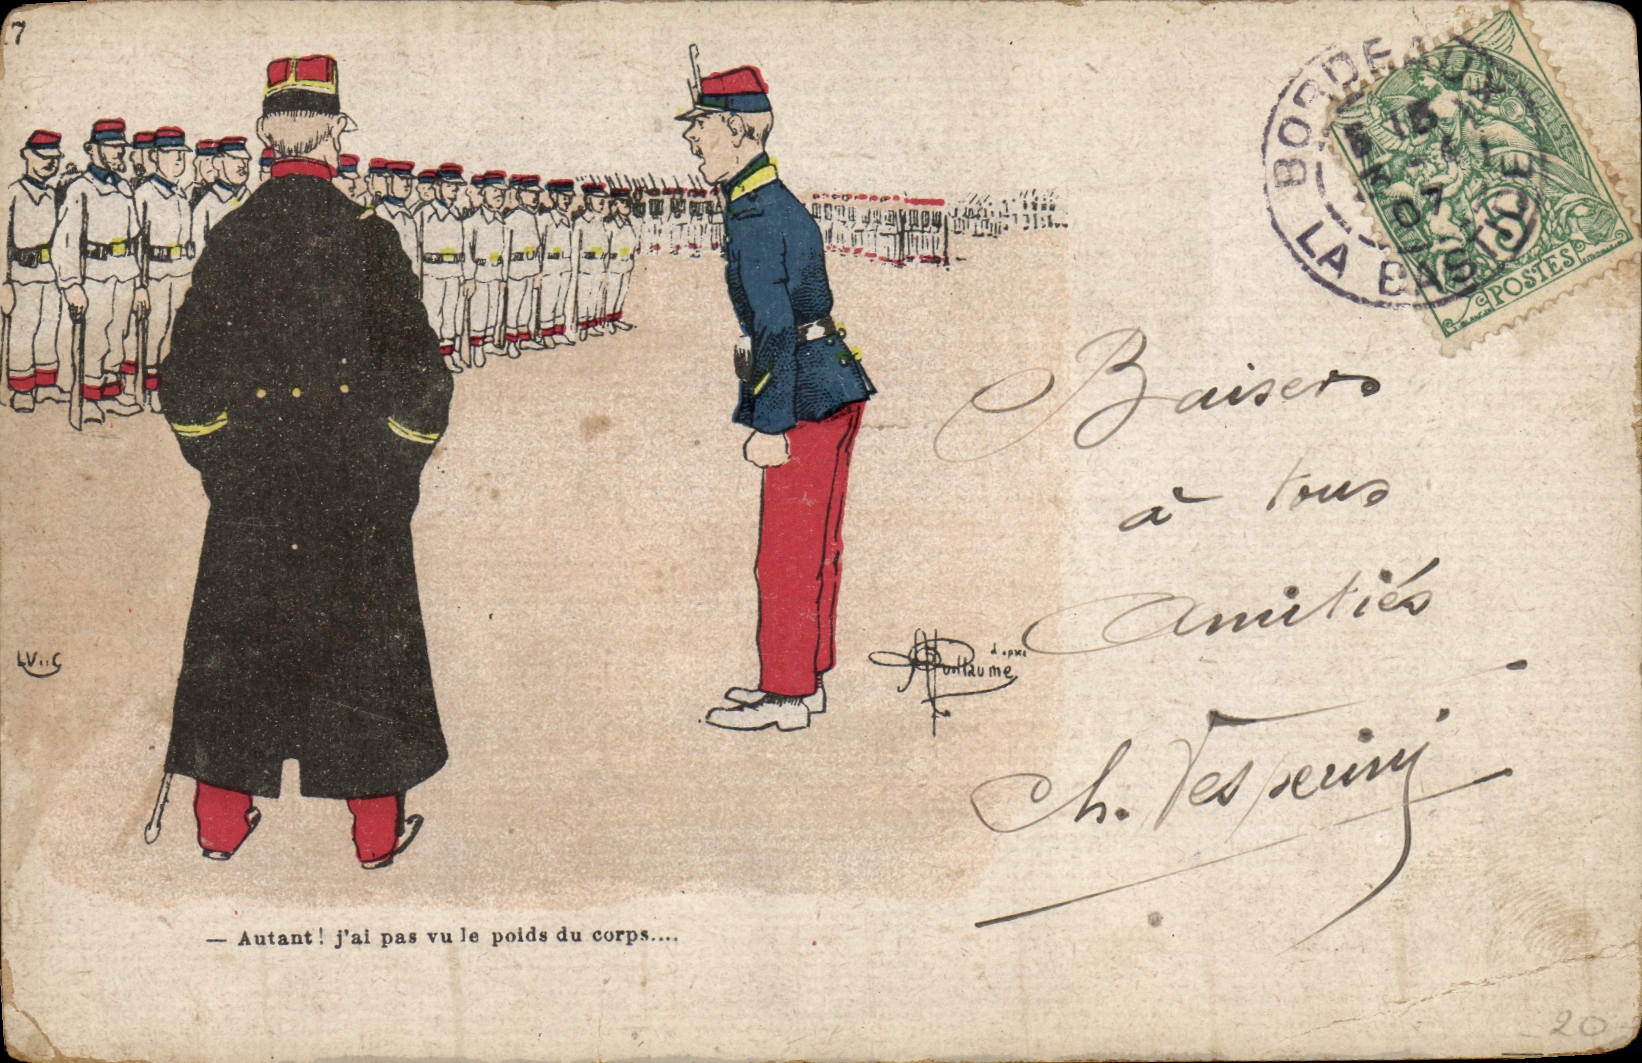 7
BORDEAUX
15
07
LA BASTIDE
5
POSTES
Baisers
à tous
Amitiés
d'après
AGuillaume
LV..C
— Autant! j'ai pas vu le poids du corps....
20